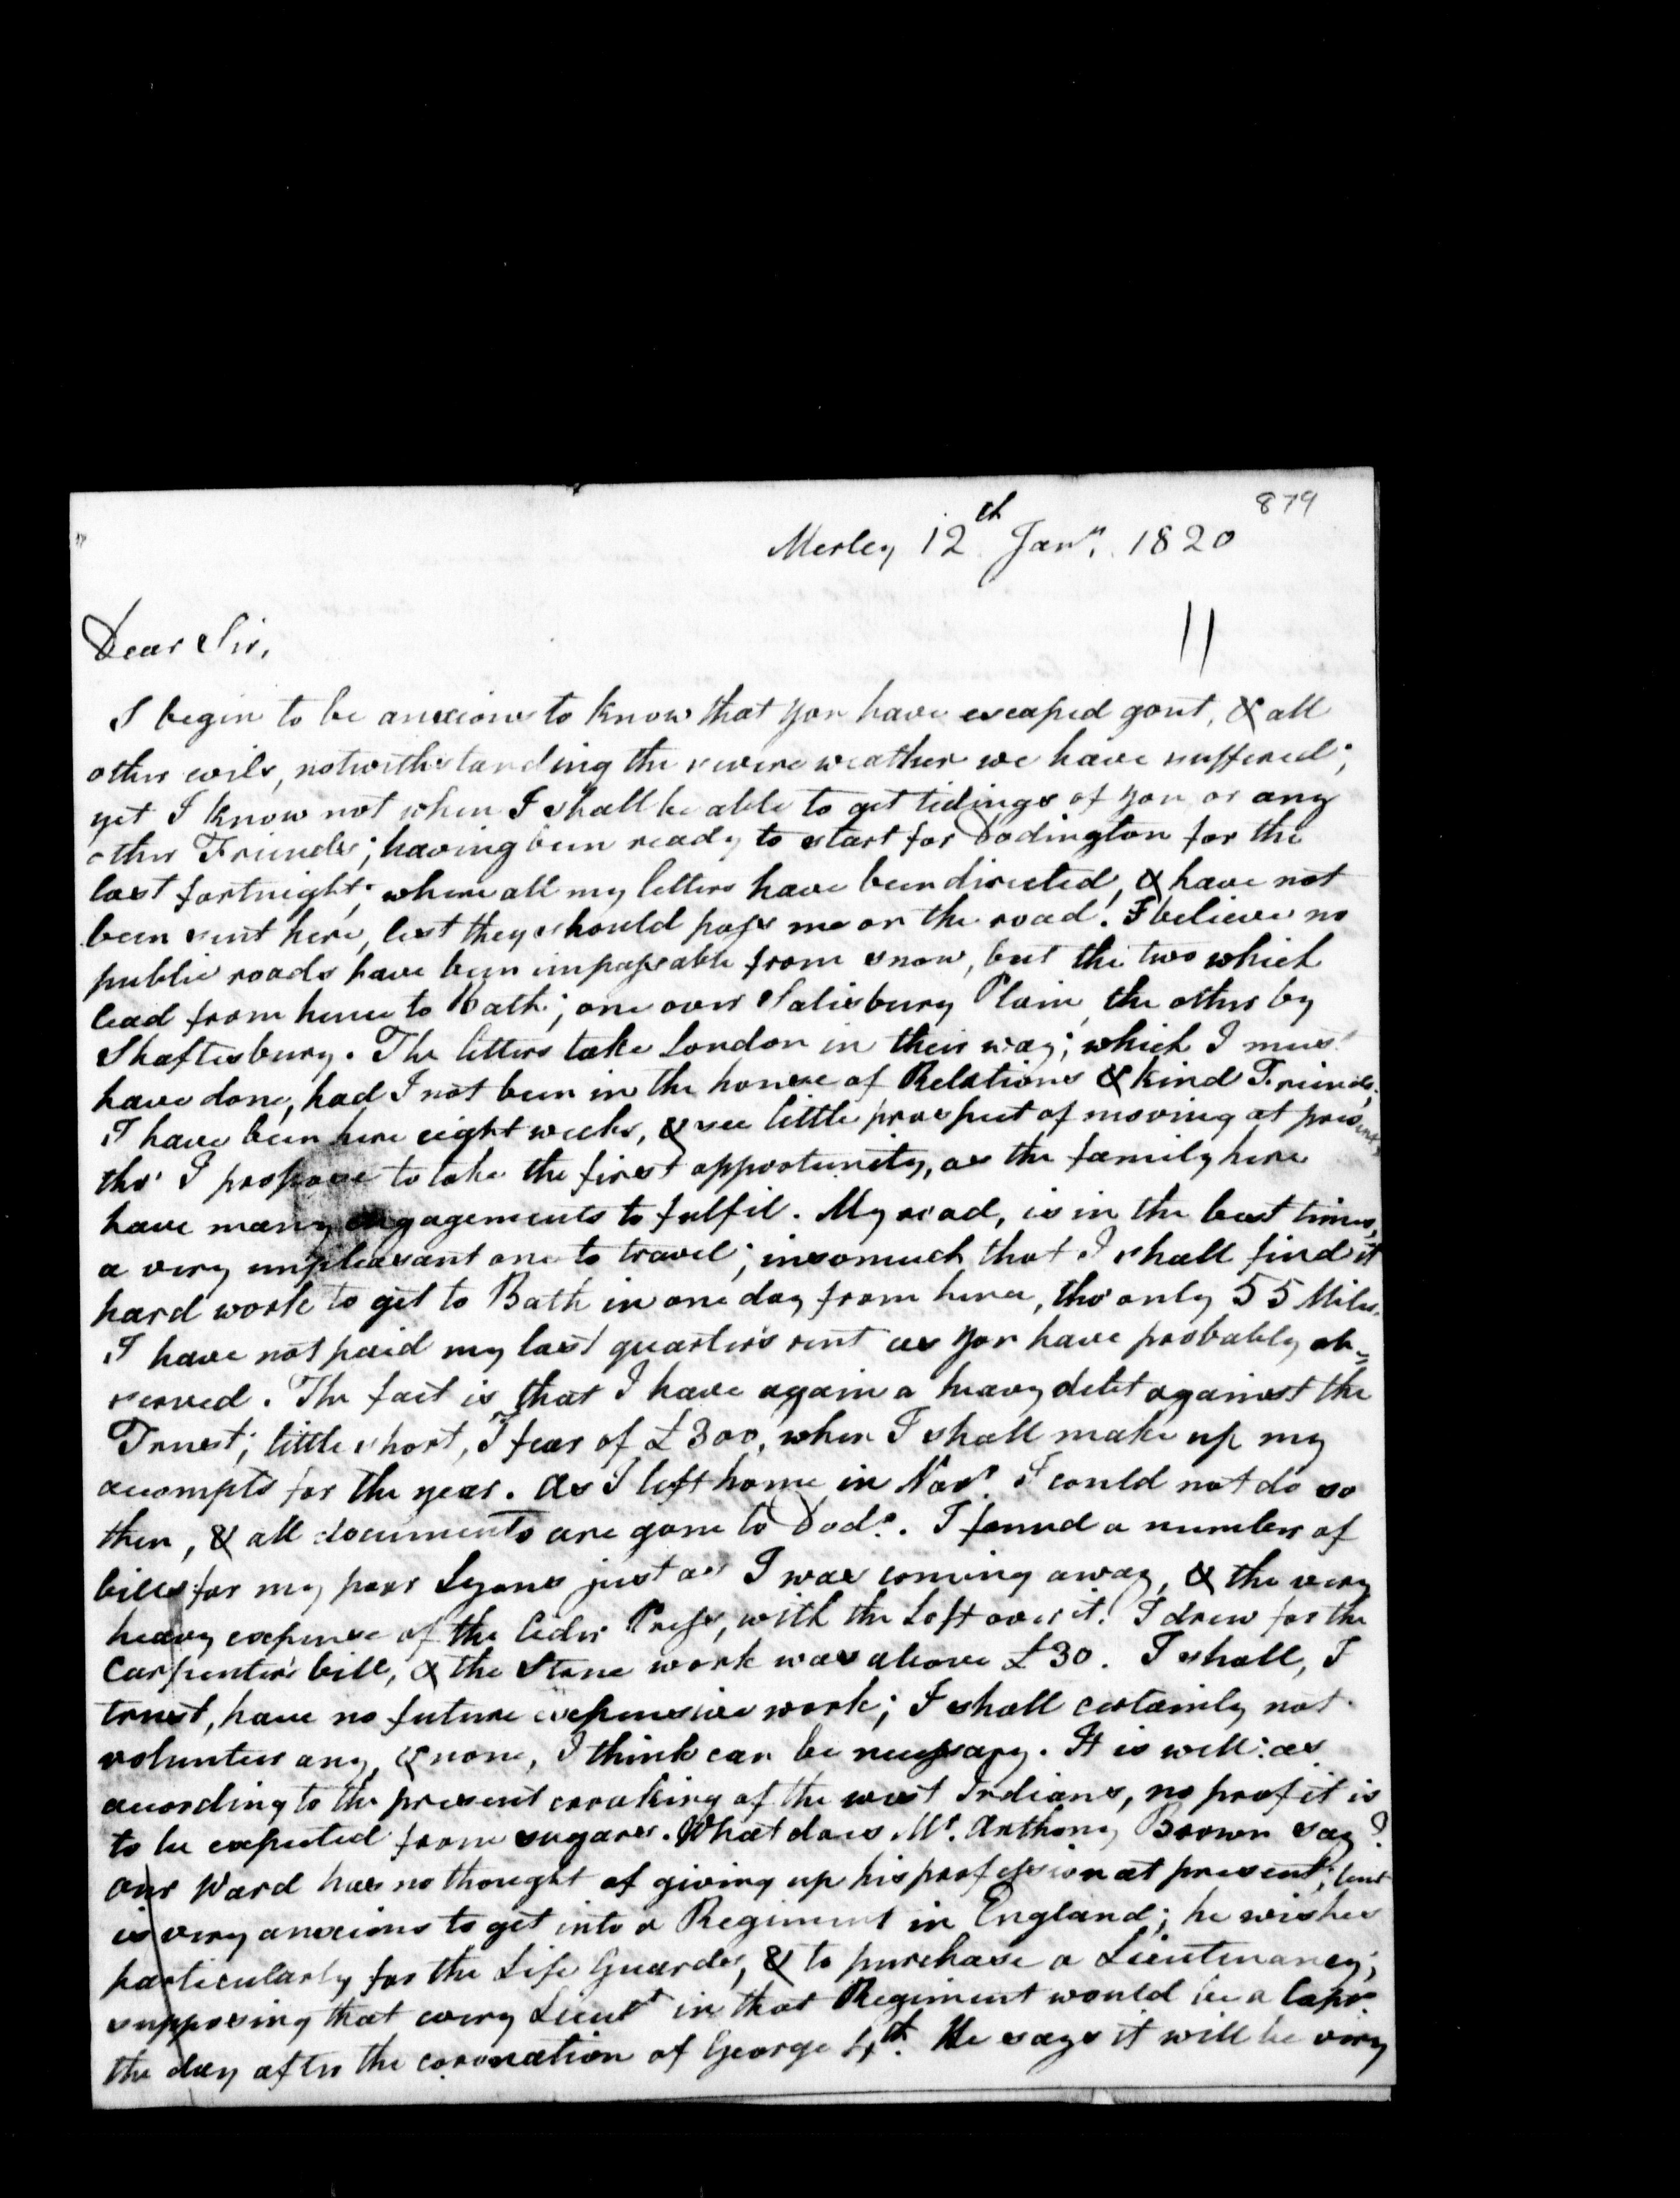 879
Merley 12th Jany. 1820
11
Dear Sir,
I begin to be anxious to know that you have escaped gout, & all
other evils, notwithstanding the severe weather we have suffered;
yet I know not when I shall be able to get tidings of you or any
other Friends; having been ready to start for Dodington for the
last fortnight; where all my letters have been directed, & have not
been sent here, lest they should pass me on the road. I believe no
public roads have been impassable from snow, but the two which
lead from hence to Bath; one over Salisbury Plain, the other by
Shaftesbury. The letters take London in their way; which I must
have done, had I not been in the house of Relations & kind Friends.
I have been here eight weeks, & see little prospect of moving at present,
tho' I propose to take the first opportunity, as the family here
have many engagements to fulfil. My road, is in the best times,
a very unpleasant one to travel; insomuch that I shall find it
hard work to get to Bath in one day from hence, tho' only 55 Miles.
I have not paid my last quarter's rent as you have probably ob=
served. The fact is that I have again a heavy debt against the
Trust; little short, I fear of £300, when I shall make up my
accompts for the year. As I left home in Novr. I could not do so
then, & all documents are gone to Dodn. I found a number of
bills for my poor Lyons just as I was coming away, & the very
heavy expense of the Cider Press, with the Loft over it. I drew for the
Carpenter's bill, & the Stone work was above £30. I shall, I
trust, have no future expensive work; I shall certainly not
volunteer any, & none, I think can be necessary. It is well: as
according to the present croaking of the west Indians, no profit is
to be expected from sugars. What does Mr. Anthony Brown say?
Our Ward has no thought of giving up his profession at present; but
is very anxious to get into a Regiment in England; he wishes
particularly for the Life Guards, & to purchase a Lieutenancy;
supposing that every Lieut in that Regiment would be a Captn
the day after the coronation of George 4th. He says it will be very